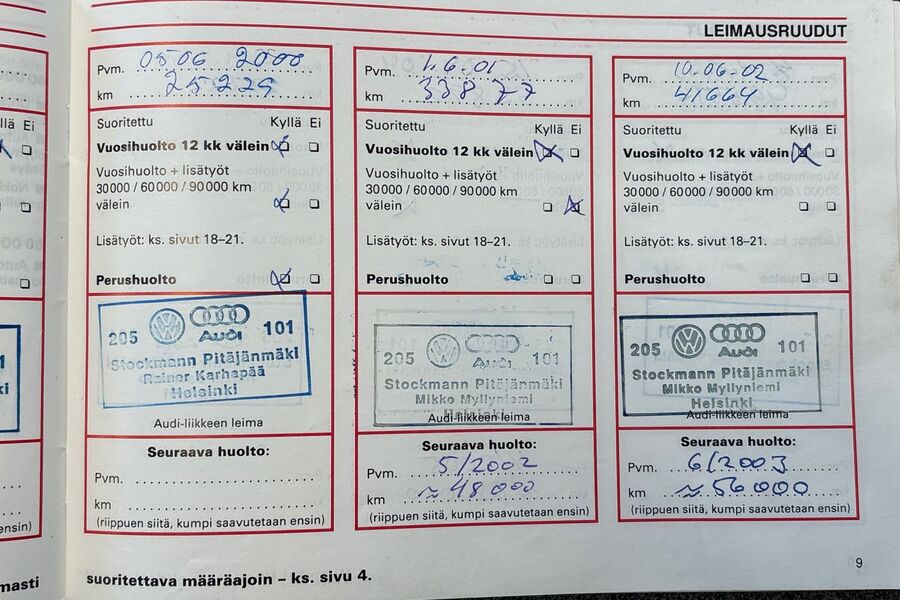 LEIMAUSRUUDUT
Pvm. 05 06 2000
km 25229
Suoritettu Kyllä Ei
Vuosihuolto 12 kk välein
Vuosihuolto + lisätyöt
30000 / 60000 / 90000 km
välein
Lisätyöt: ks. sivut 18–21.
Perushuolto
205 Audi 101
Stockmann Pitäjänmäki
Rainer Karhapää
Helsinki
Audi-liikkeen leima
Seuraava huolto:
Pvm.
km
(riippuen siitä, kumpi saavutetaan ensin)
Pvm. 1.6.01
km 33877
Suoritettu Kyllä Ei
Vuosihuolto 12 kk välein
Vuosihuolto + lisätyöt
30000 / 60000 / 90000 km
välein
Lisätyöt: ks. sivut 18–21.
Perushuolto
205 101
Stockmann Pitäjänmäki
Mikko Myllyniemi
Helsinki
Audi-liikkeen leima
Seuraava huolto:
Pvm. 5/2002
km ≈ 48000
(riippuen siitä, kumpi saavutetaan ensin)
Pvm. 10.06-02
km 41664
Suoritettu Kyllä Ei
Vuosihuolto 12 kk välein
Vuosihuolto + lisätyöt
30000 / 60000 / 90000 km
välein
Lisätyöt: ks. sivut 18–21.
Perushuolto
205 Audi 101
Stockmann Pitäjänmäki
Mikko Myllyniemi
Helsinki
Audi-liikkeen leima
Seuraava huolto:
Pvm. 6/2003
km ≈ 56000
(riippuen siitä, kumpi saavutetaan ensin)
suoritettava määräajoin – ks. sivu 4.
9